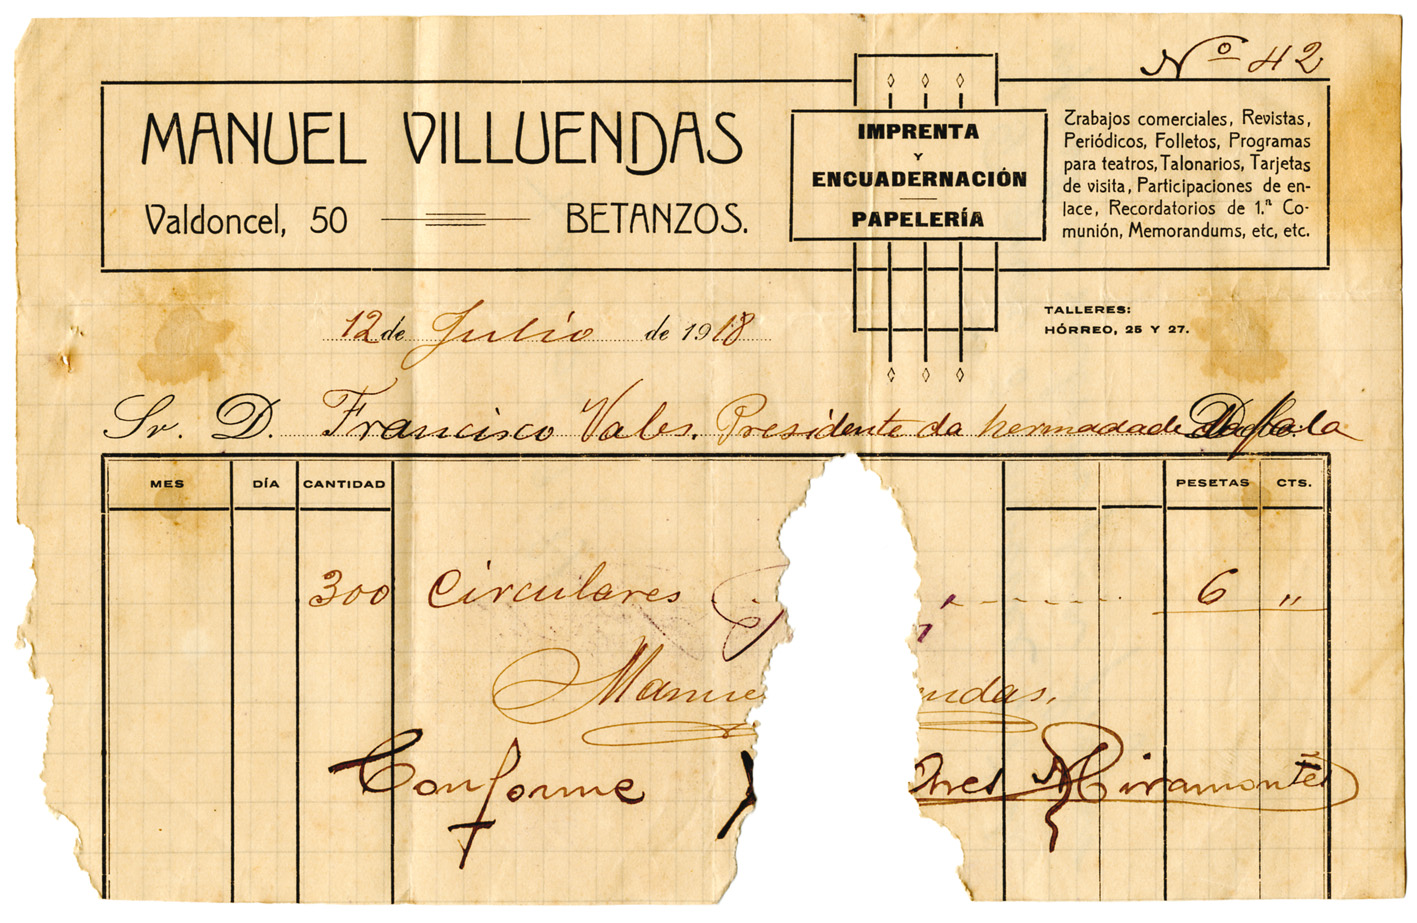 Nº 42
MANUEL VILLUENDAS
Valdoncel, 50 BETANZOS.
IMPRENTA
Y
ENCUADERNACIÓN
PAPELERÍA
Trabajos comerciales, Revistas,
Periódicos, Folletos, Programas
para teatros, Talonarios, Tarjetas
de visita, Participaciones de en-
lace, Recordatorios de 1.ª Co-
munión, Memorandums, etc, etc.
TALLERES:
HÓRREO, 25 Y 27.
12 de Julio de 1918
Sr. D. Francisco Vales. Presidente da hermadade la
MES DÍA CANTIDAD PESETAS CTS.
300 Circulares 6 "
Manue ndas.
Conforme